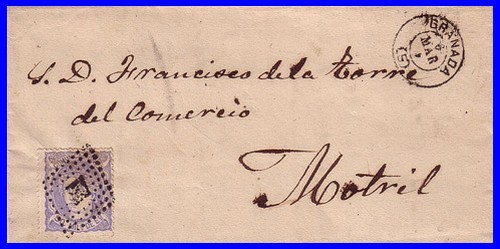 GRANADA
MAR
(5)
S. D. Francisco de la Torre
del Comercio
Motril